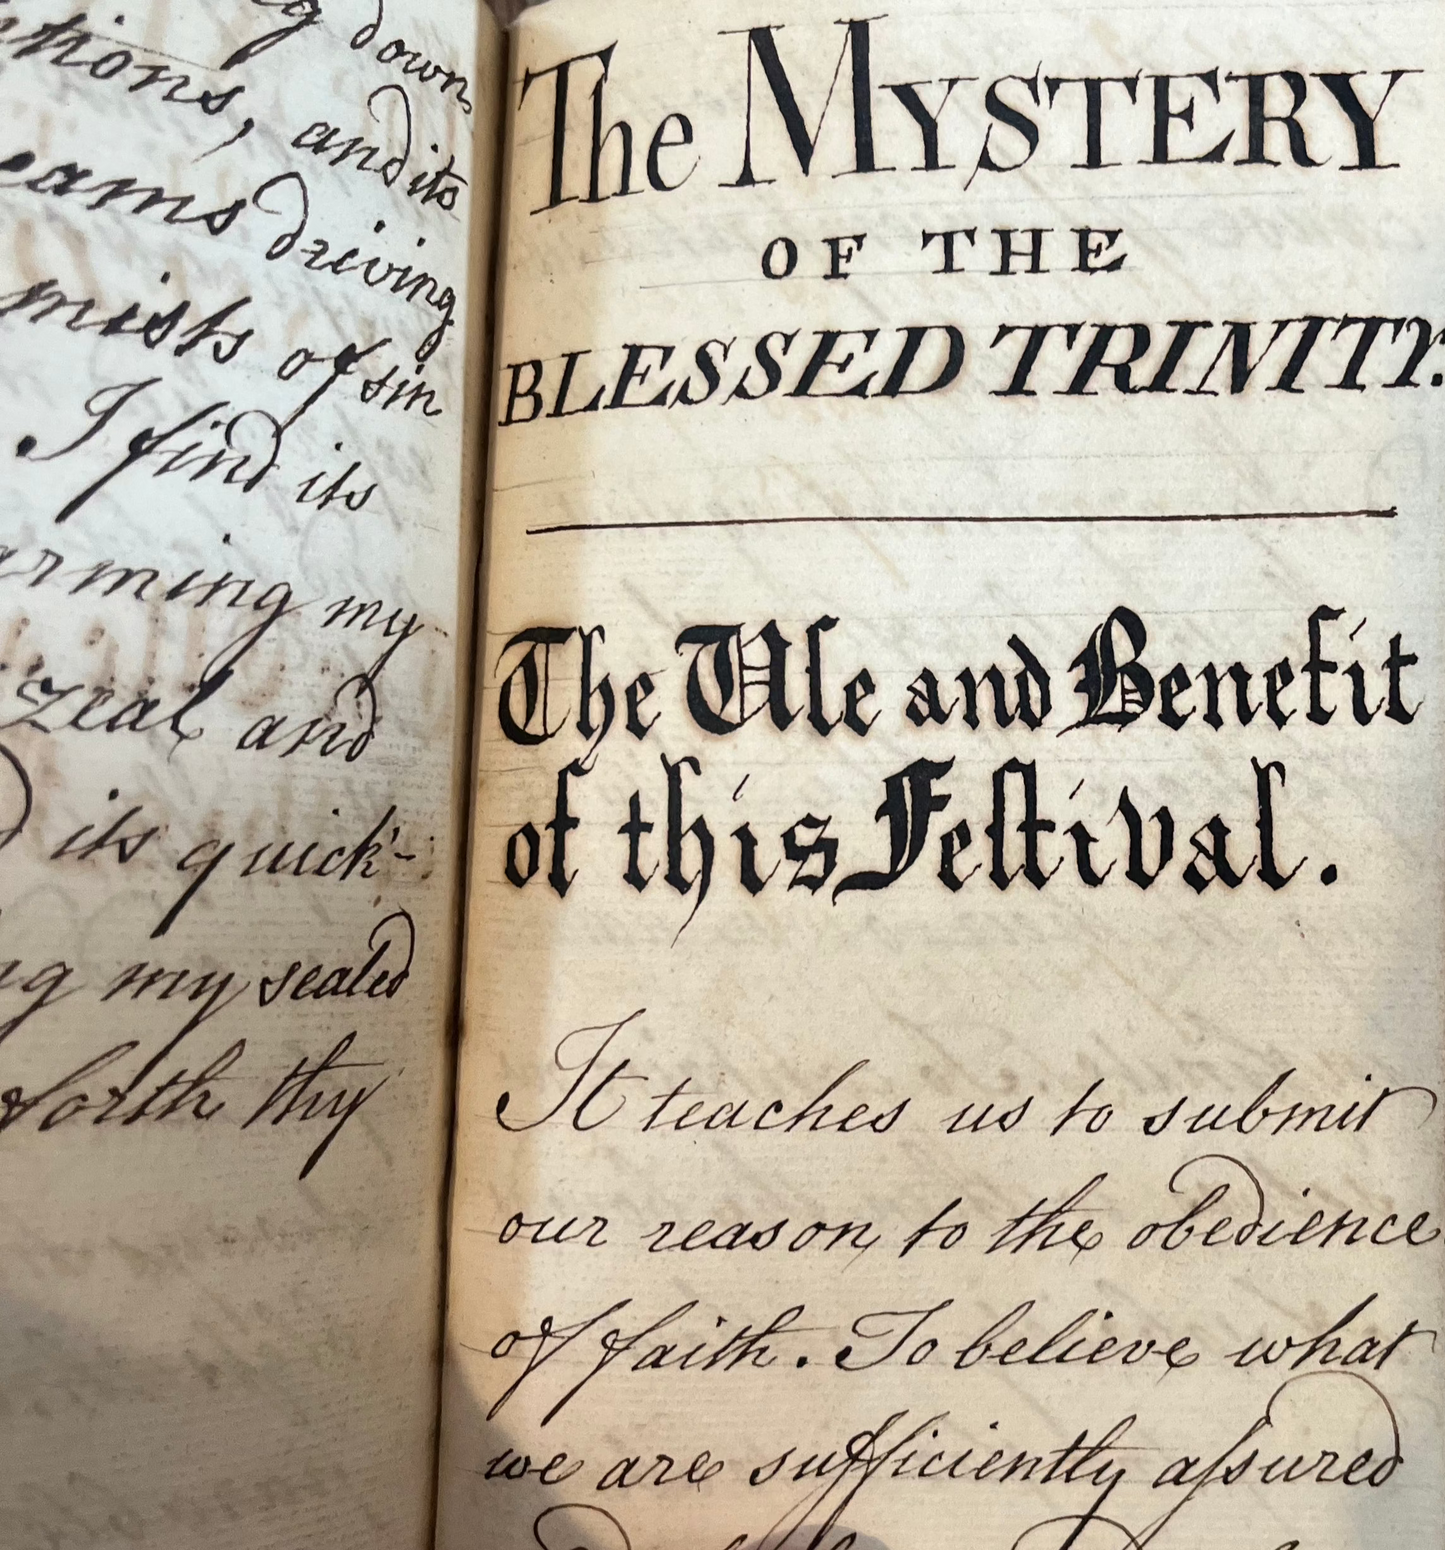 down
and its
driving
mists of sin
I find its
my
zeal and
its quick'-
my sealed
forth thy
The MYSTERY
OF THE
BLESSED TRINITY.
The Uſe and Benefit
of this Feſtival.
It teaches us to submit
our reason to the obedience
of faith. To believe what
we are sufficiently aſsured